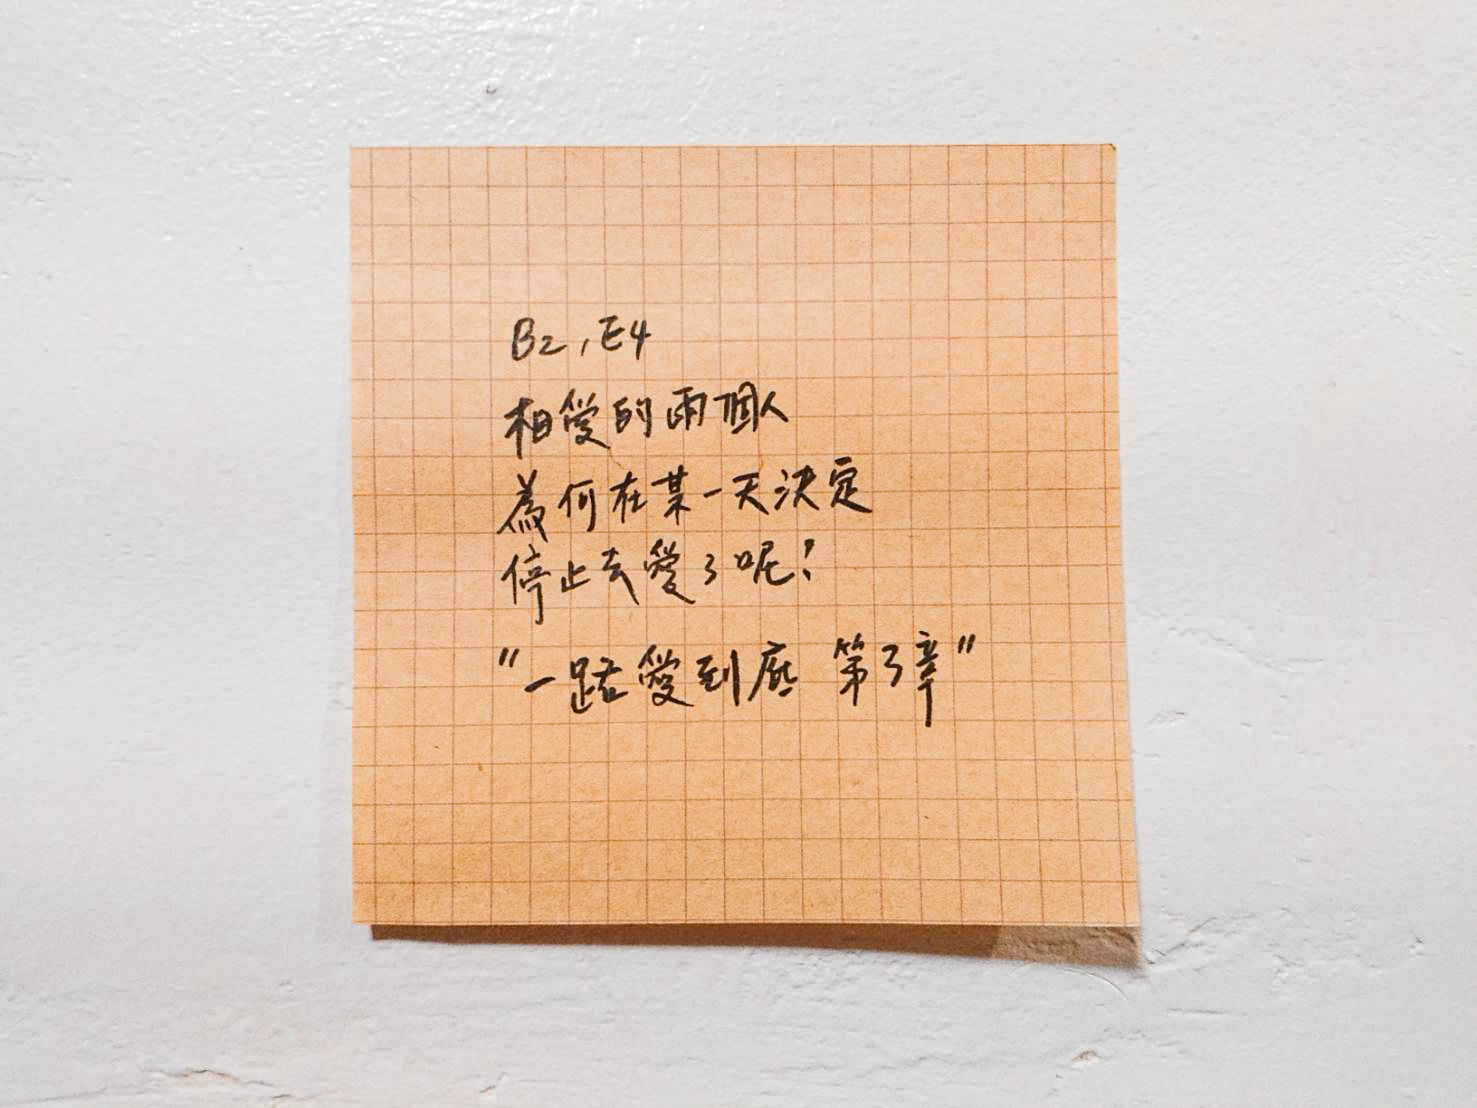 B2,E4
相愛的兩個人
為何在某一天決定
停止去愛了呢?
"一路愛到底 第3章"